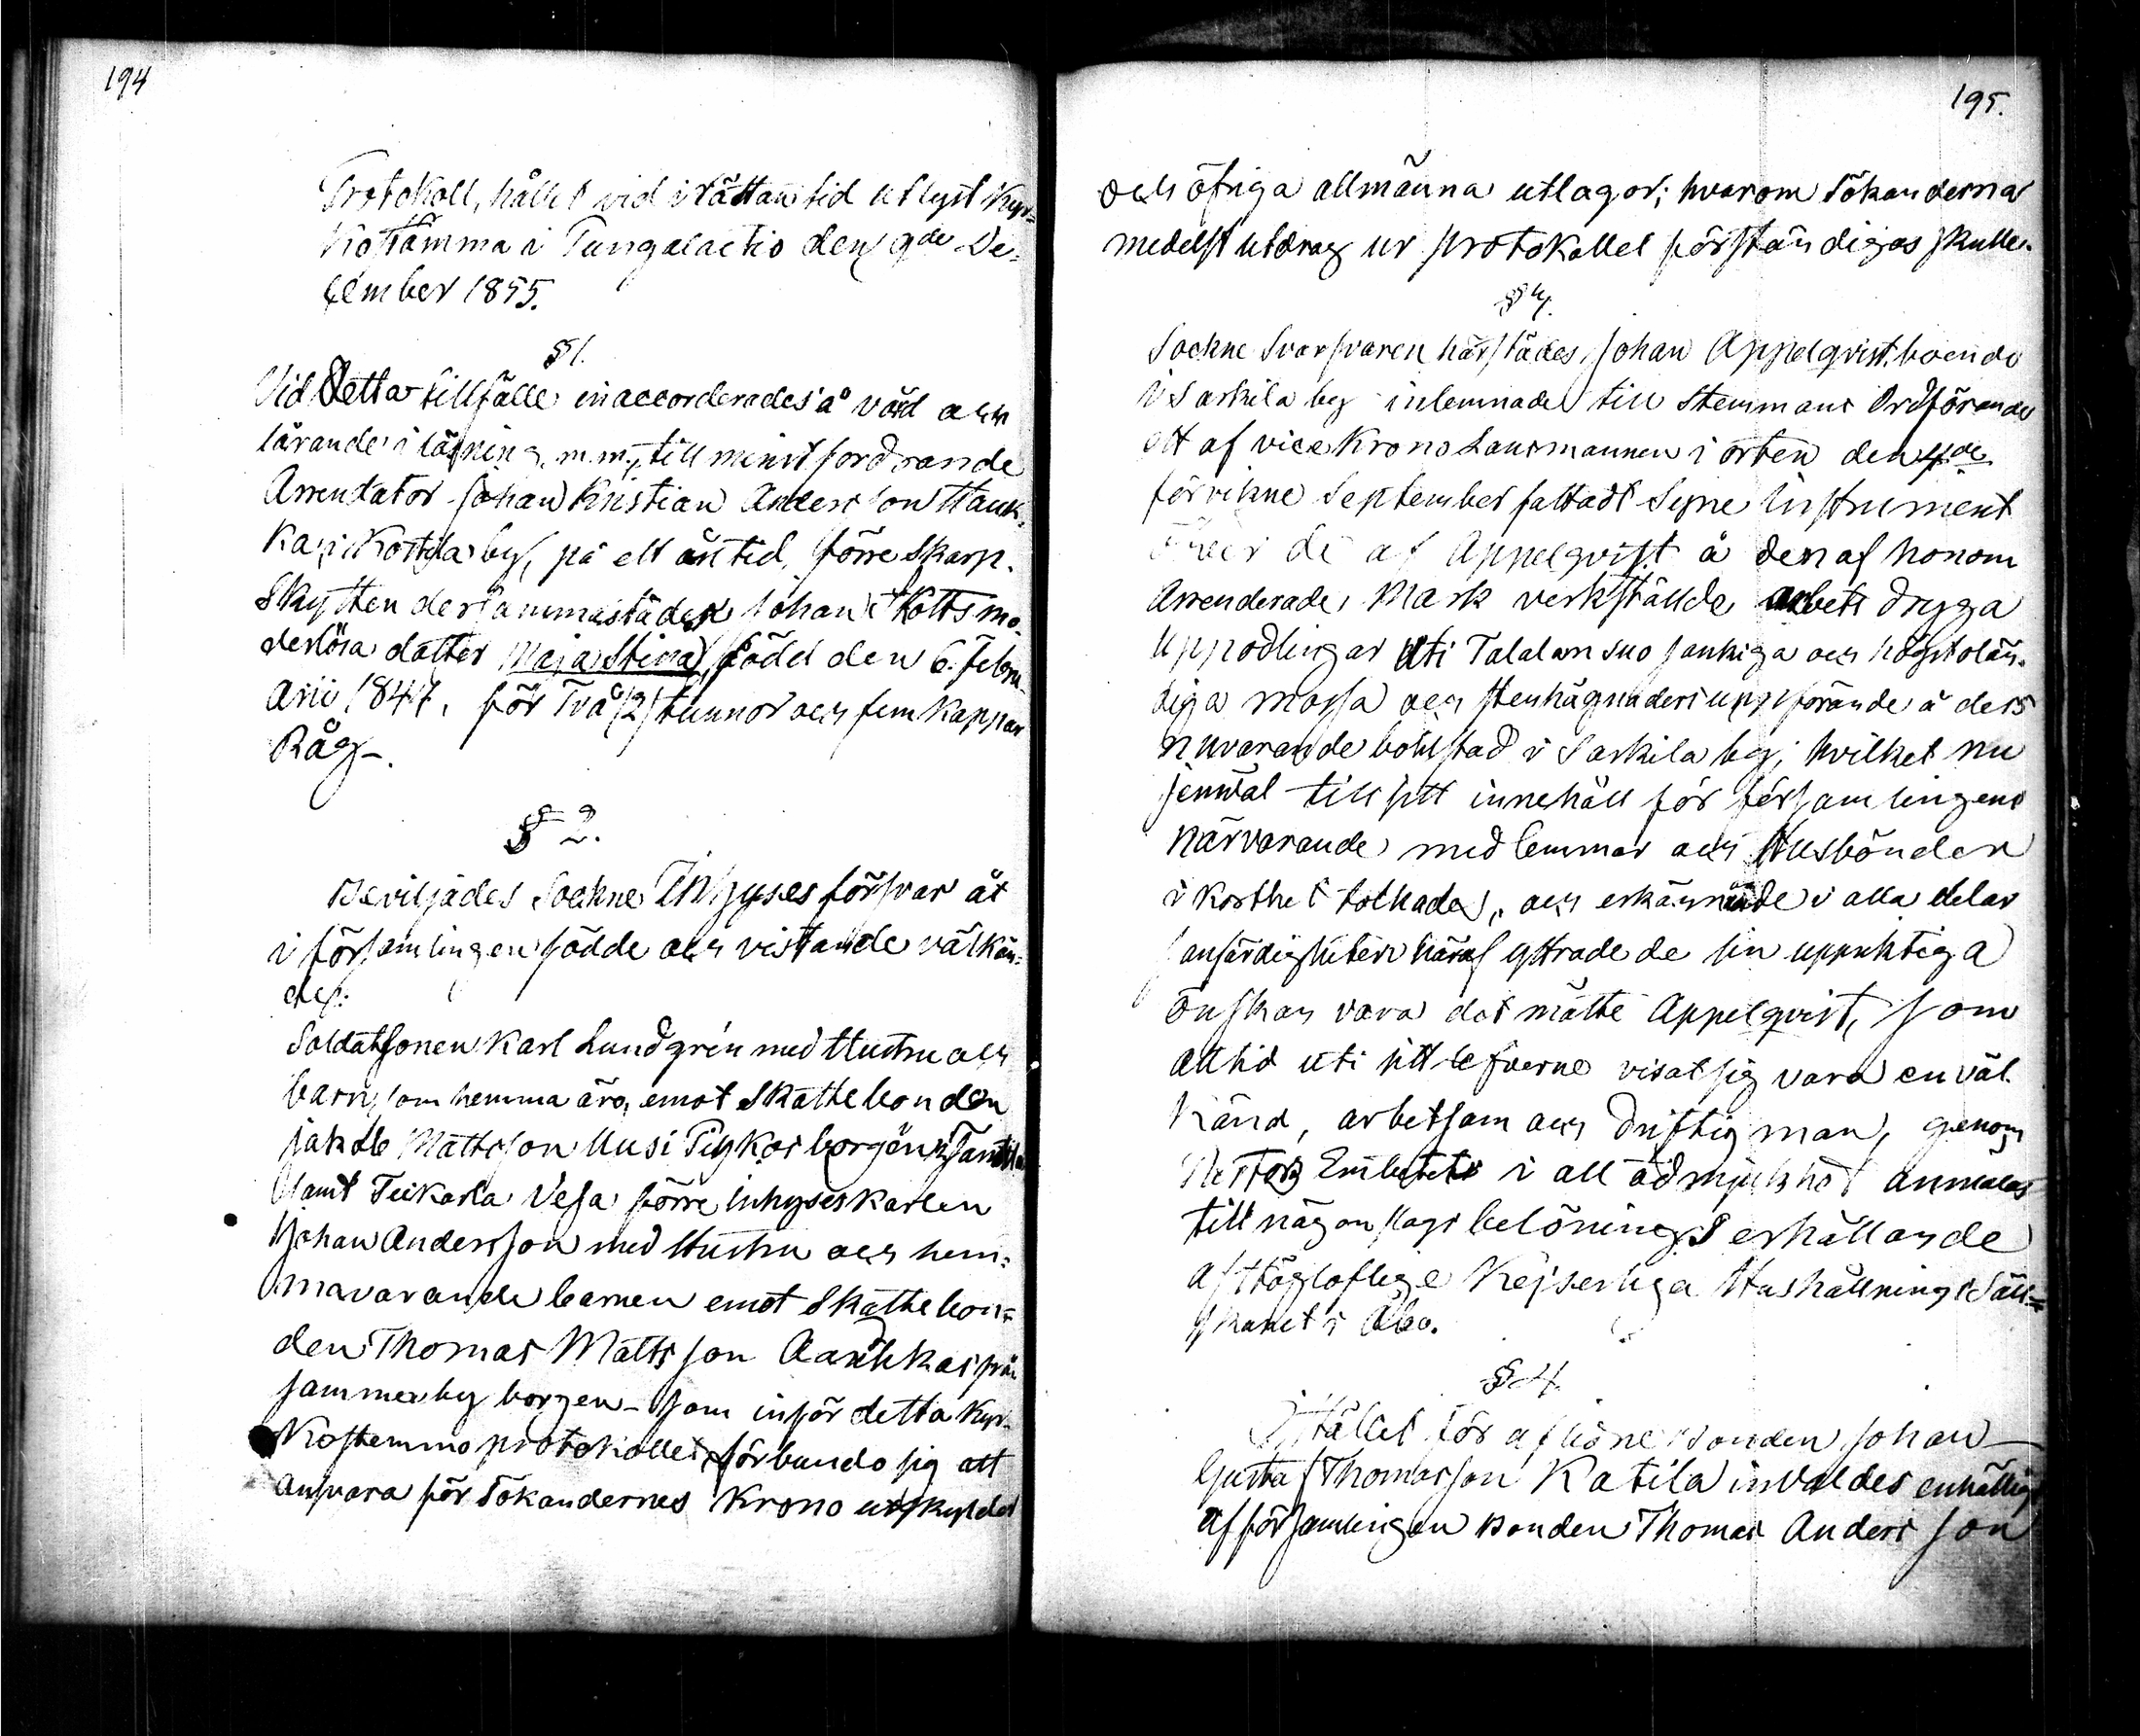 194
Protokoll, hållet vid i rättan tid utlyst Kyr-
kostämma i Pungalaitio den 9de De-
cember 1855.
§ 1.
Vid Detta tillfälle inaccorderades å vård och
lärande i läsning, m.m., till minst fordrande
Arrendator Johan Kristian Andersson Hauk-
ka, i Kostila by, på ett års tid, förre Skarp-
Skytten dersammastädes Johan Flotts mo-
derlösa dotter Maja Stina, född den 6. Febru-
arii 1847, för Två /2/ tunnor och fem kappar
Råg.
§ 2.
Beviljades Sockne Inhyses försvar åt
i församlingen födde och vistande välkän-
de:
Soldatsonen Karl Lundgrén med Hustru och
barn, som hemma äro, emot Skattebonden
Jakob Mattsson Uusi Pijkas borgen,
samt Teikarla Vesa förre inhyseskarlen
Johan Andersson med Hustru och hem-
mavarande barnen emot Skattebon-
den Thomas Mattsson från
samma by borgen – som inför detta Kyr-
kostemmo protokollet förbundo sig att
ansvara för Sökandernes Krono utskylder
195.
och öfriga allmänna utlagor; hvarom Sökanderna
medelst utdrag ur protokollet förständigas skulle.
§
Sockne Svarfvaren härstädes, Johan Appelqvist, boende
i Sarkila by inlemnade till Stemmans Ordförande
ett af vice Krono Länsmannen i orten den 4de
förvikne September fattadt Syne Instrument
öfver de af Appelqvist å den af honom
Arrenderade Mark verkställde arbets dryga
Uppodlingar uti Talalansuo sankiga och högstolän-
diga mossa och stenhägnaders uppförande å dess
nuvarande bohlstad i Sarkila by; hvilket nu
jemväl till sitt innehåll för församlingens
närvarande medlemmar och Husbönder
i korthet tolkades, och erkännande i alla delar
sanfärdigheten häraf yttrade de sin uppriktiga
önskan vara det måtte Appelqvist, som
alltid uti sitt lefverne visat sig vara en väl-
känd, arbetsam och driftig man, genom
Embetet i all ödmjukhet anmälas
till någon slags belönings erhållande
af Högloflige Kejserliga Hushållnings Säll-
skapet i Åbo.
§ 4.
I stället för aflidne Bonden Johan
Gustaf Thomasson Katila invaldes enhällig
af församlingen Bonden Thomas Andersson